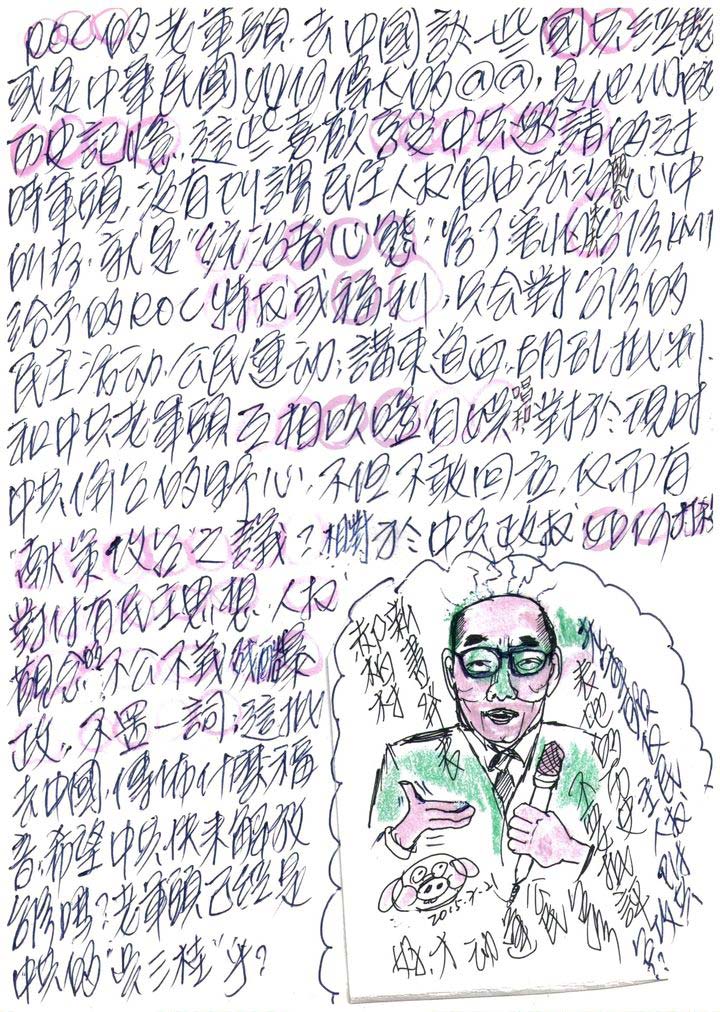 ROC的老軍頭,去中國談一些國共經驗
或是中華民國如何偉大的@@,是他們的
歷史記憶,這些喜歡享受中共邀請的過
時軍頭,沒有所謂民主人权自由法治觀念心中
所存,就是"統治者心態"除了享收台湾KMT
給予的ROC特权或福利,只会對台湾的
民主活动.公民運动;講東道西,胡乱批判.
和中共老軍頭互相吹噓自娛唱和對於現时
中共併台的野心,不但不敢回应,反而有
"献策攻台"之議?相對於中共政权
對付有民主思想.人权
觀念的不公不義
政,不置一詞;這批
去中國,傳佈什麼福
音,希望中共快來解放
台湾嗎?老軍頭已經是
中共的"吳三桂"乎?
郝柏村
新書發表
批評
公民
運动
2015.7.21